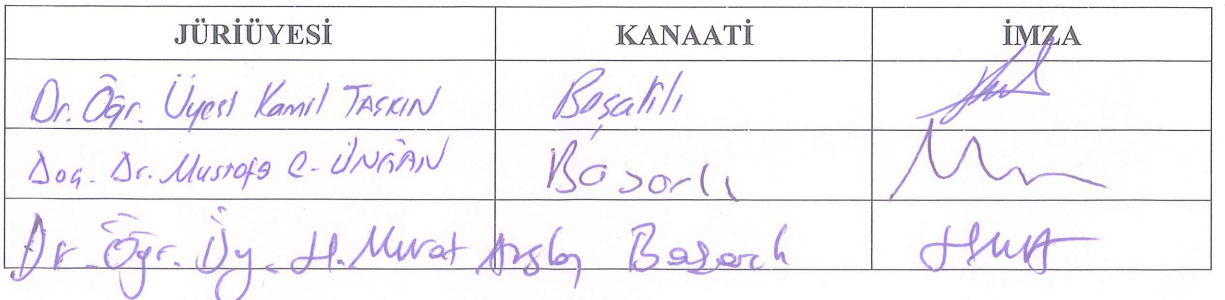 JÜRİÜYESİ KANAATİ İMZA
Dr. Öğr. Üyesi Kamil TAŞKIN Başarılı
Doç. Dr. Mustafa C. ÜNĞAN Başarılı
Dr. Öğr. Üy. H. Murat Arslan Başarılı